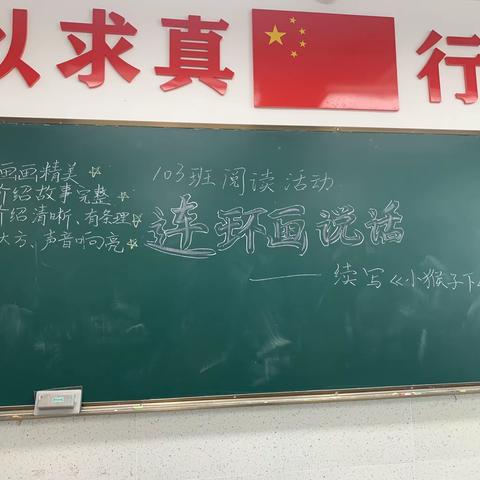 以求真 行
画画精美
介绍故事完整
介绍清晰、有条理
大方、声音响亮
103班阅读活动
连环画说话
——续写《小猴子下